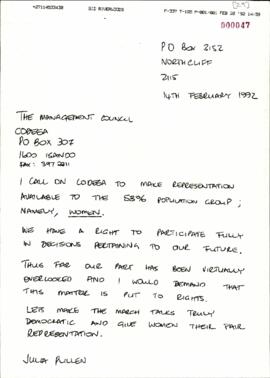 +27114533438 BIZ RIVERWOODS F-337 T-102 P-001/001 FEB 28 '92 14:39
000047
PO BOX 2152
NORTHCLIFF
2115
14TH FEBRUARY 1992
THE MANAGEMENT COUNCIL
CODESA
PO BOX 307
1600 ISANDO
FAX: 397 2211
I CALL ON CODESA TO MAKE REPRESENTATION
AVAILABLE TO THE 53% POPULATION GROUP;
NAMELY, WOMEN.
WE HAVE A RIGHT TO PARTICIPATE FULLY
IN DECISIONS PERTAINING TO OUR FUTURE.
THUS FAR OUR PART HAS BEEN VIRTUALLY
OVERLOOKED AND I WOULD DEMAND THAT
THIS MATTER IS PUT TO RIGHTS.
LETS MAKE THE MARCH TALKS TRULY
DEMOCRATIC AND GIVE WOMEN THEIR FAIR
REPRESENTATION.
JULIA PULLEN